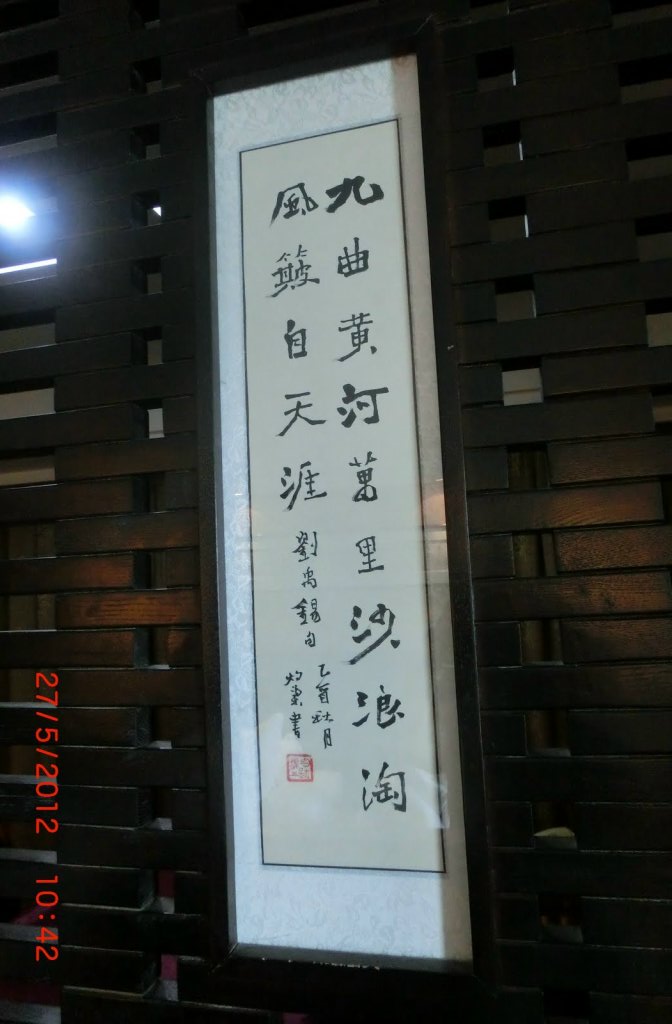 九曲黄河萬里沙浪淘
風簸自天涯
劉禹錫句
乙酉秋月
書
27/5/2012 10:42